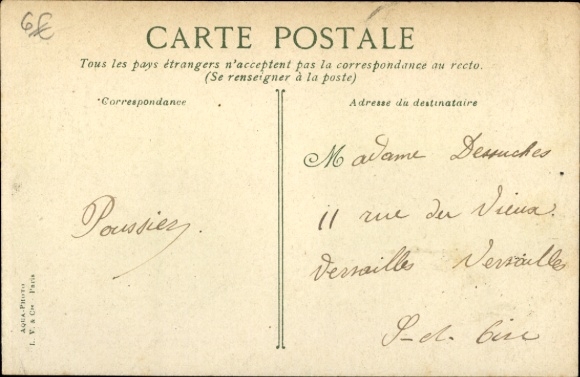 6€
CARTE POSTALE
Tous les pays étrangers n'acceptent pas la correspondance au recto.
(Se renseigner à la poste)
Correspondance
Adresse du destinataire
Madame Dessuches
11 rue du Vieux
Versailles Versailles
S-et-Oise
Poussier
AQUA-PHOTO
L. V. & Cie Paris